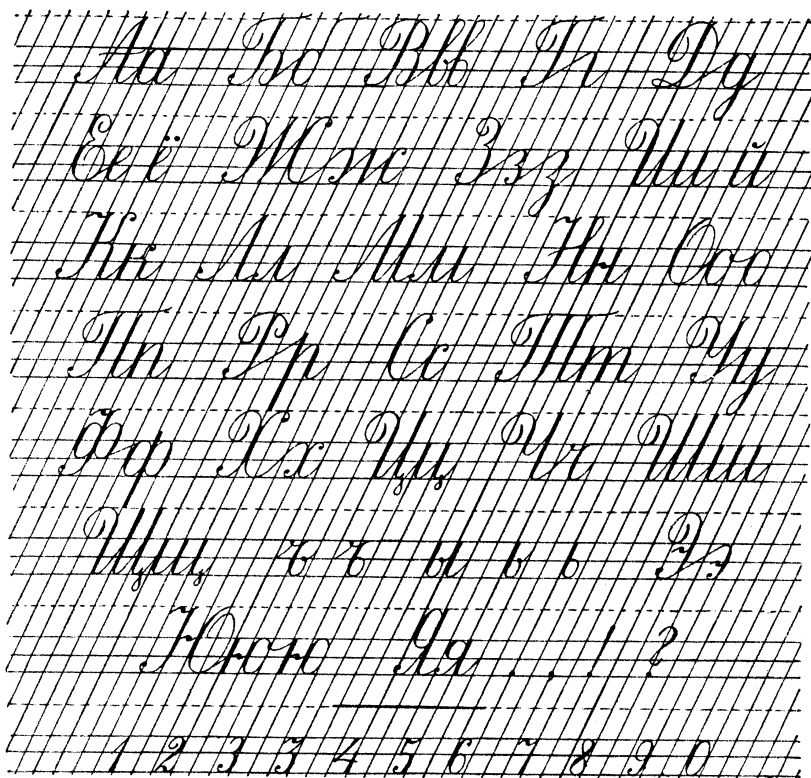 Аа Бб Ввв Гг Дд
Ее ё Жж Ззз Ии й
Кк Лл Мм Нн Ооо
Пп Рр Сс Тт Уу
Фф Хх Цц Чч Шш
Щщ ъ ъ ы ь ь Ээ
Ююю Яя . , ! ?
1 2 3 3 4 5 6 7 8 9 0